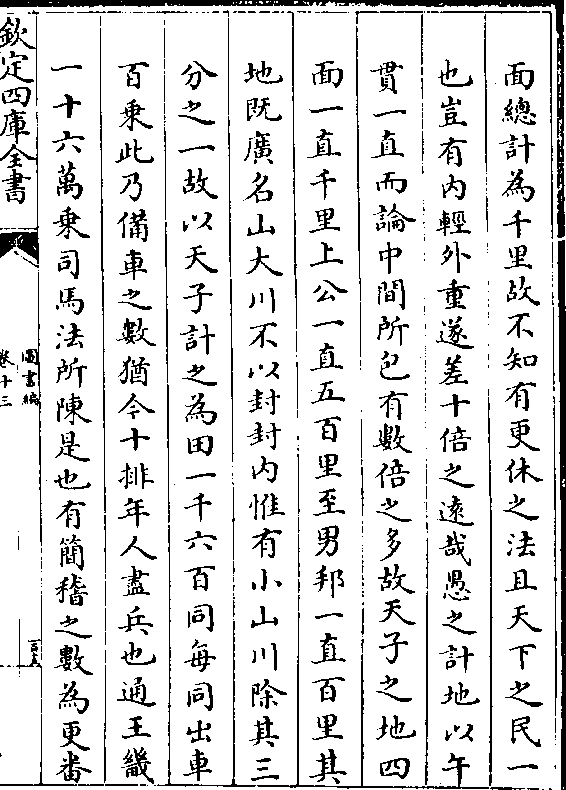 面總計為千里故不知有更休之法且天下之民一
也豈有内輕外重遂差十倍之遠哉愚之計地以午
貫一直而論中間所包有數倍之多故天子之地四
面一直千里上公一直五百里至男邦一直百里其
地既廣名山大川不以封封内惟有小山川除其三
分之一故以天子計之為田一千六百同每同出車
百乗此乃備車之數猶今十排年人盡兵也通王畿
一十六萬乗司馬法所陳是也有簡稽之數為更畨
欽定四庫全書
圖書編
卷十三